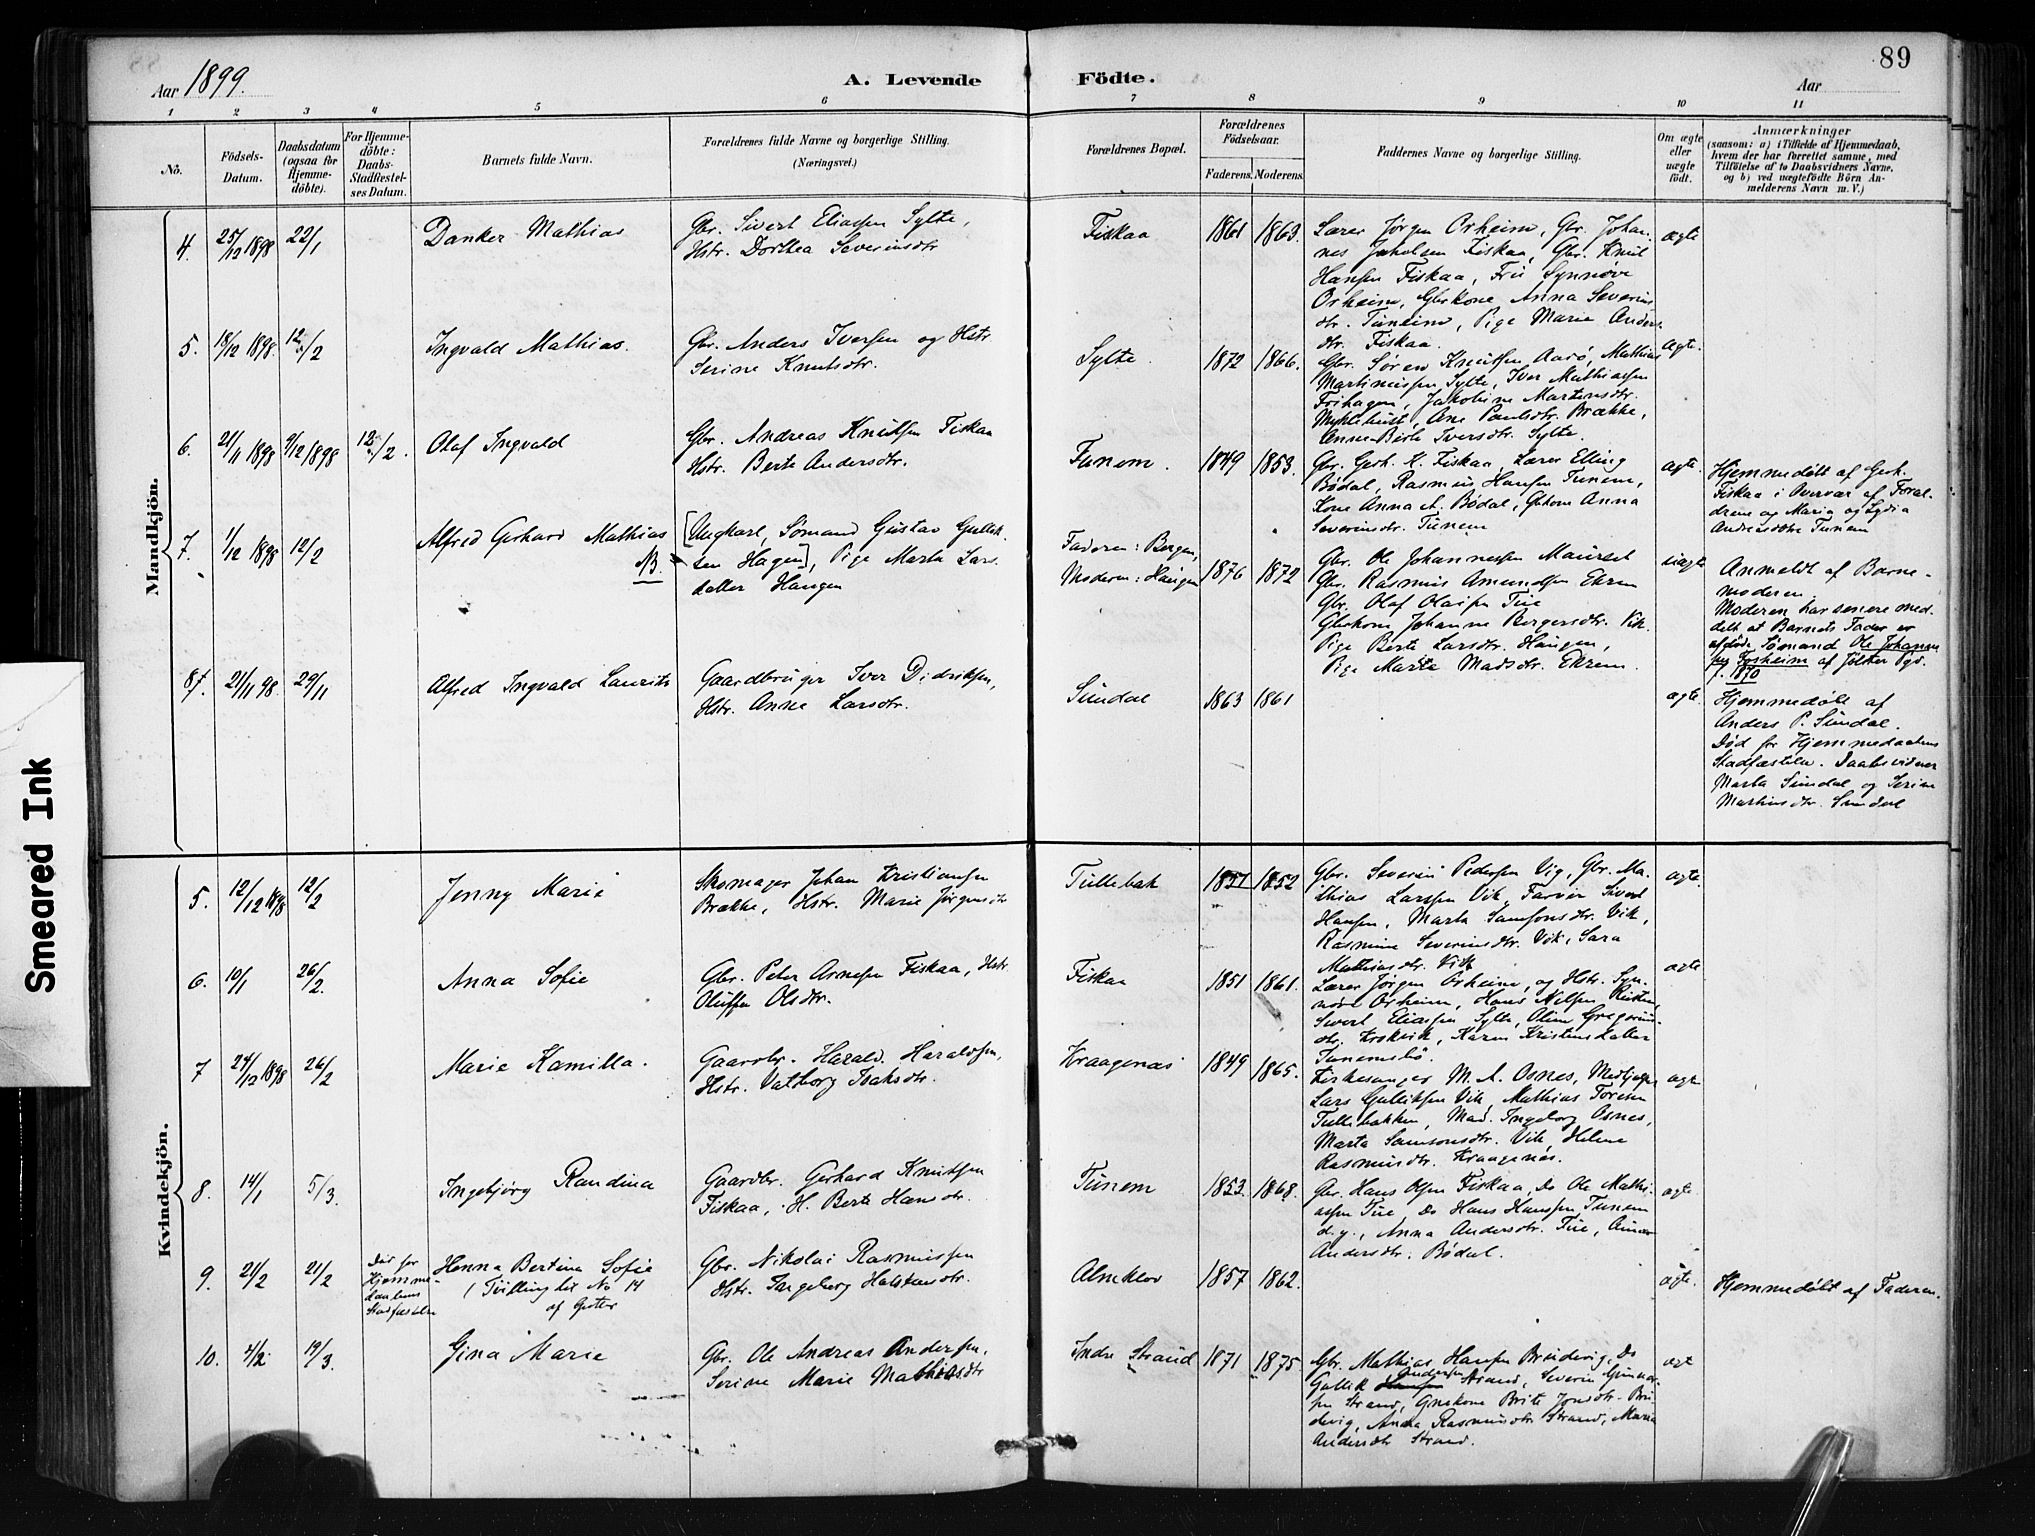 89
Aar 1899.
A. Levende Födte.
Aar
1 2 3 4 5 6 7 8 9 10 11
No.
Födsels-Datum.
Daabsdatum (ogsaa for Hjemme-döbte).
For Hjemme-döbte: Daabs-Stadfæstel-ses Datum.
Barnets fulde Navn.
Forældrenes fulde Navne og borgerlige Stilling.
(Næringsvei.)
Forældrenes Bopæl.
Forældrenes Födselsaar.
Faderens. Moderens.
Faddernes Navne og borgerlige Stilling.
Om ægte eller uægte födt.
Anmærkninger
(saasom: a) i Tilfælde af Hjemmedaab,
hvem der har forrettet samme, med
Tilföielse af to Daabsvidners Navne,
og b) ved uægtefödte Börn An-
melderens Navn m. V.)
Mandkjön.
4. 25/12 1898 22/1 Danker Mathias
Gbr. Sivert Eliassen Sylte,
Hstr. Dorthea Severinsdtr
Fiskaa 1861 1863.
Lærer Jørgen Orheim, Gbr. Johan-
nes Jakobsen Fiskaa, Gbr. Knut
Hansen Fiskaa, Fru Synnøve
Orheim, Gbrkone Anna Severins
dtr. Tuneim, Pige Marie Anders
dtr. Fiskaa.
ægte
5. 18/12 1898 12/2 Ingvald Mathias.
Gbr. Anders Iversen og Hstr
Serine Knutsdtr.
Sylte. 1872 1866.
Gbr. Søren Knutsen Aarø, Mathias
Martinussen Sylte, Iver Mathiassen
Frihagen, Jakobine Martinsdtr.
Myklebust, Ane Paulsdtr. Brække,
Anne-Birte Iversdtr. Sylte.
ægte.
6. 21/11 1898 9/12 1898 12/2. Olaf Ingvald
Gbr. Andreas Knutsen Fiskaa
Hstr. Berte Andersdtr.
Tunem. 1849 1853.
Gbr. Gerh. K. Fiskaa, Lærer Elling
Bødal, Rasmus Hansen Tunem,
Kone Anna A. Bødal, Gbkone Anna
Severinsdtr. Tunem
ægte.
Hjemmedøbt af Gerh.
Fiskaa i Overvær af Foræl-
drene og Maria og Lydia
Andreasdtre Tunem
7. 1/12 1898 12/2 Alfred Gerhard Mathias
NB.
[Ungkarl, Sømand Gustav Gullik-
sen Hagen], Pige Marta Lars
datter Haugen
Faderen: Bergen,
Moderen: Haugen
1876 1872
Gbr. Ole Johannessen Maurset
Gbr. Rasmus Amundsen Ekrem
Gbr. Olaf Olaisen Tue
Gbrkone Johanne Bergersdtr. Vik.
Pige Berte Larsdtr. Haugen,
Pige Marte Madsdtr. Ekrem.
uægte
Anmeldt af Barne-
moderen.
Moderen har senere med-
delt at Barnets Fader er
afdøde Sømand Ole Johannes
sen Fosheim af Jölster Pgd.
f. 1870
8f. 21/11 98. 29/11 Alfred Ingvald Laurits
Gaardbruger Iver Didriksen,
Hstr. Anne Larsdtr.
Sundal 1863 1861
ægte.
Hjemmedøbt af
Anders P. Sundal.
Død før Hjemmedaabens
Stadfæstelse. Daabsvidner
Marta Sundal og Serine
Martinsdtr. Sundal
Kvindekjön.
5. 12/12 1898 12/2 Jenny Marie
Skomager Johan Kristiansen
Brække, Hstr. Marie Jørgensdtr
Tullebak 1851 1852
Gbr. Severin Pedersen Vig, Gbr. Ma-
thias Larssen Vik, Farver Sivert
Hansen, Marta Samsonsdtr. Vik,
Rasmine Severinsdtr. Vik, Sara
Mathiasdtr. Vik
ægte.
6. 10/1 26/2 Anna Sofie
Gbr. Peter Arnesen Fiskaa, Hstr.
Oluffa Olsdtr.
Fiskaa 1851 1861.
Lærer Jørgen Orheim, og Hstr. Syn-
nøve Orheim, Hans Nilsen Rusten,
Sivert Eliassen Sylte, Oline Gregorius-
dtr. Krokvik, Karen Kristensdatter
Tunemsbø.
ægte
7 24/12 1898 26/2 Marie Kamilla.
Gaardbr. Harald Haraldsen,
Hstr. Valborg Isaksdtr.
Kraagenæs 1849 1865.
Kirkesanger M. A. Osnes, Medhjelper
Lars Gulliksen Vik, Mathias Toresen
Tullebakken, Mad. Ingeborg Osnes,
Marta Samsonsdtr. Vik, Helene
Rasmusdtr. Kraagenæs.
ægte
8. 14/1 5/3. Ingebjørg Randina
Gaardbr. Gerhard Knutsen
Fiskaa, H. Berte Hansdtr.
Tunem 1853. 1868.
Gbr. Hans Olsen Fiskaa, Do Ole Mathi-
assen Tue, Do Hans Hanssen Tunem
d.y., Anna Andersdtr. Tue, Anna
Andersdtr. Bødal.
ægte
9. 21/2 21/2
Død før
Hjemme-
daabens
Stadfæstelse
Hanna Bertina Sofie
(Tvilling til No 14
af Gutter
Gbr. Nikolai Rasmussen
Hstr. Ingeborg Halstensdtr.
Almklov 1857 1862.
ægte.
Hjemmedøbt af Faderen.
10. 4/2. 19/3. Gina Marie
Gbr. Ole Andreas Andersen,
Serine Marie Mathiasdtr
Indre Strand 1871 1875.
Gbr. Mathias Hansen Brudevig, Do
Gullik Hansen Andersen Strand, Severin Gunnar-
sen Strand, Gmkone Brite Jonsdtr. Bru-
devig, Anna Rasmusdtr Strand, Maria
Andersdtr Strand.
ægt
Smeared Ink